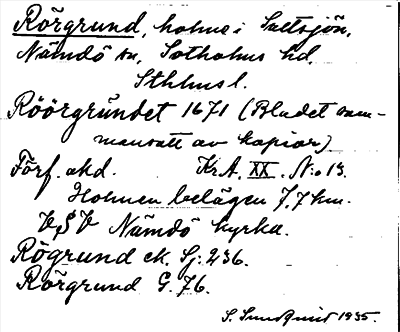 Rörgrund, holme i Saltsjön,
Nämdö sn, Sotholms hd.
Sthlms l.
Röörgrundet 1671 (Bladet sam-
mansatt av kopior)
Förf. akd. Kr.A. XX. N:o 13.
Holmen belägen 7,7 km.
V Nämdö kyrka.
Rögrund ek. Sj: 236.
Rörgrund G. 76.
S. Sundquist 1935.